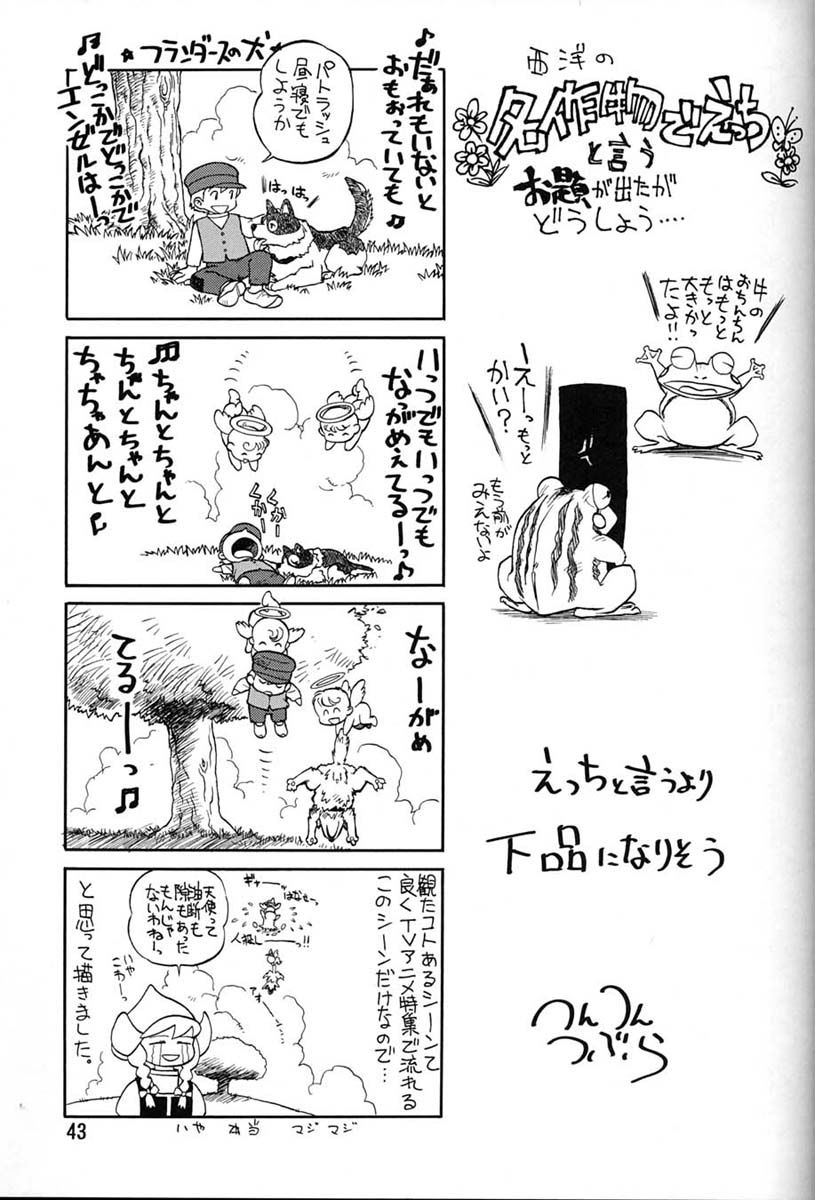 西洋の
名作物でえっち
と言う
お題が出たが
どうしよう‥‥
牛の
おちんちん
はもっと
もっと
大きかっ
たよ!!
えーっもっと
かい?
もう前が
みえないよ
えっちと言うより
下品になりそう
つんつん
つぶら
★フランダースの犬★
♪だぁれもいないと
おもおっていても♪
♫どこかでどこかで
エンゼルはーっ
パトラッシュ
昼寝でも
しようか
はっはっ
いつでもいつでも
なっがめえてるーっ♪
♫ちゃんとちゃんと
ちゃんとちゃんと
ちゃちゃあんと♪
くかー
くかー
なーがめ
てるーーっ♫
観たコトあるシーンて
良くTVアニメ特集で流れる
このシーンだけなので…
ギャーーッ
はなせーっ
人殺しーーっ!!
天使って
油断も
隙もあった
もんじゃ
ないわねーっ
いや
こわーっ
と思って描きました。
いや 本当 マジマジ
43